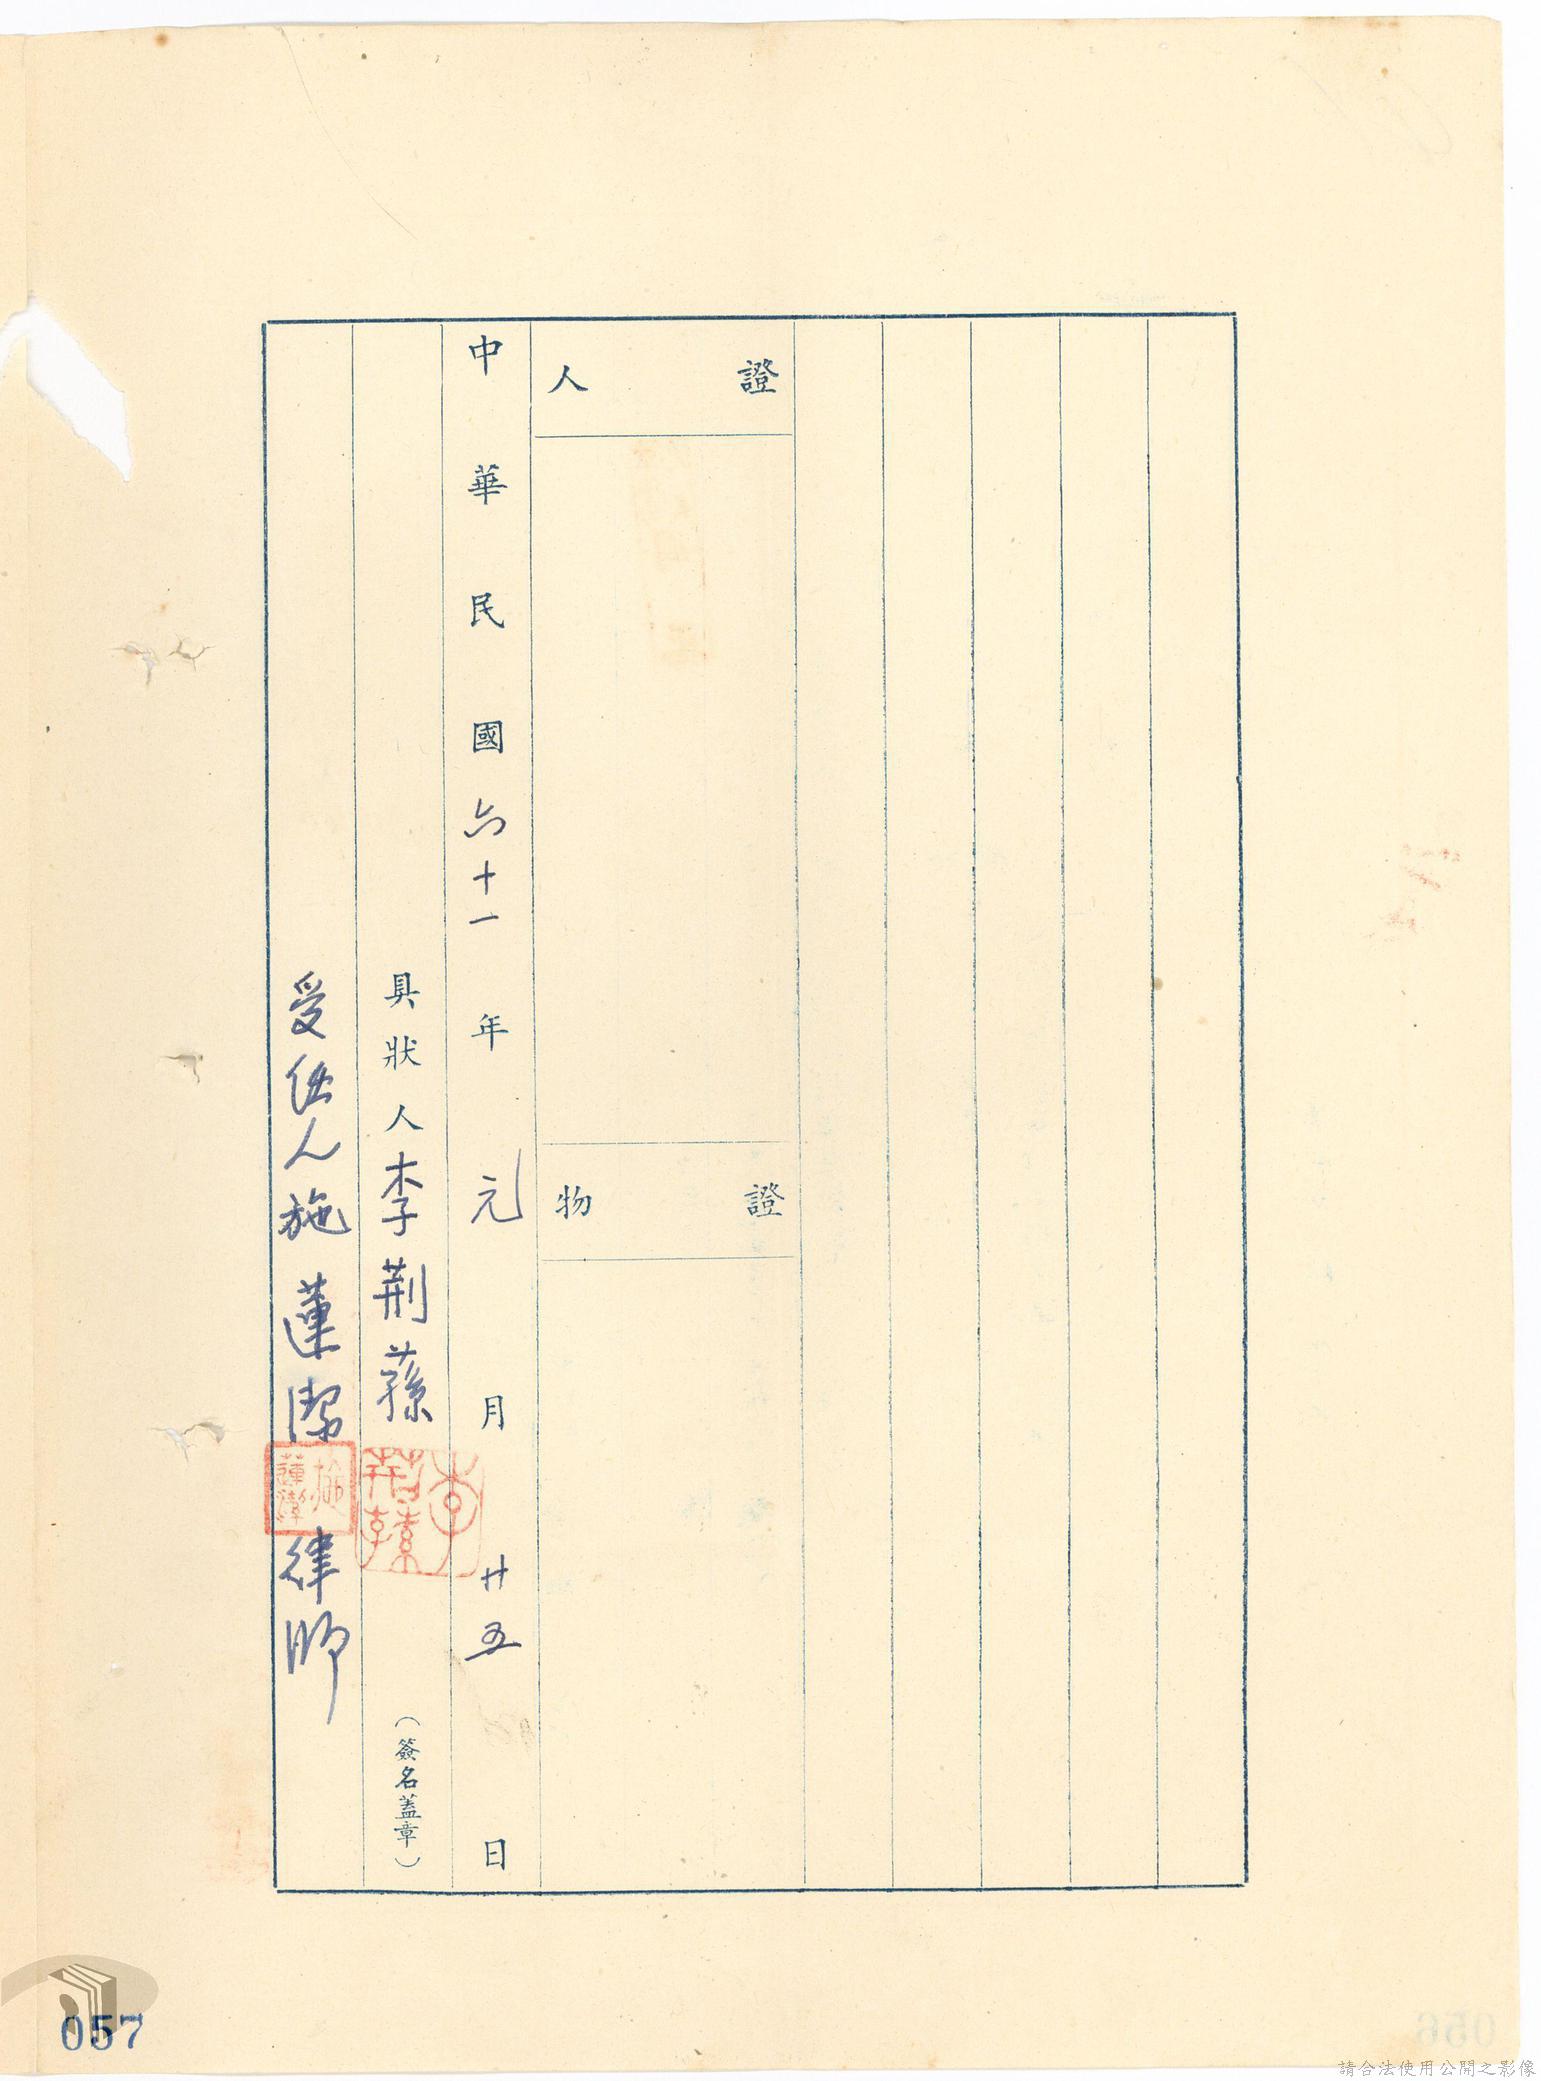 證人
證物
中華民國六十一年元月廿五日
具狀人李荆蓀(簽名蓋章)
受任人施蓮潔律師
李荆蓀
施蓮潔
057
056
請合法使用公開之影像